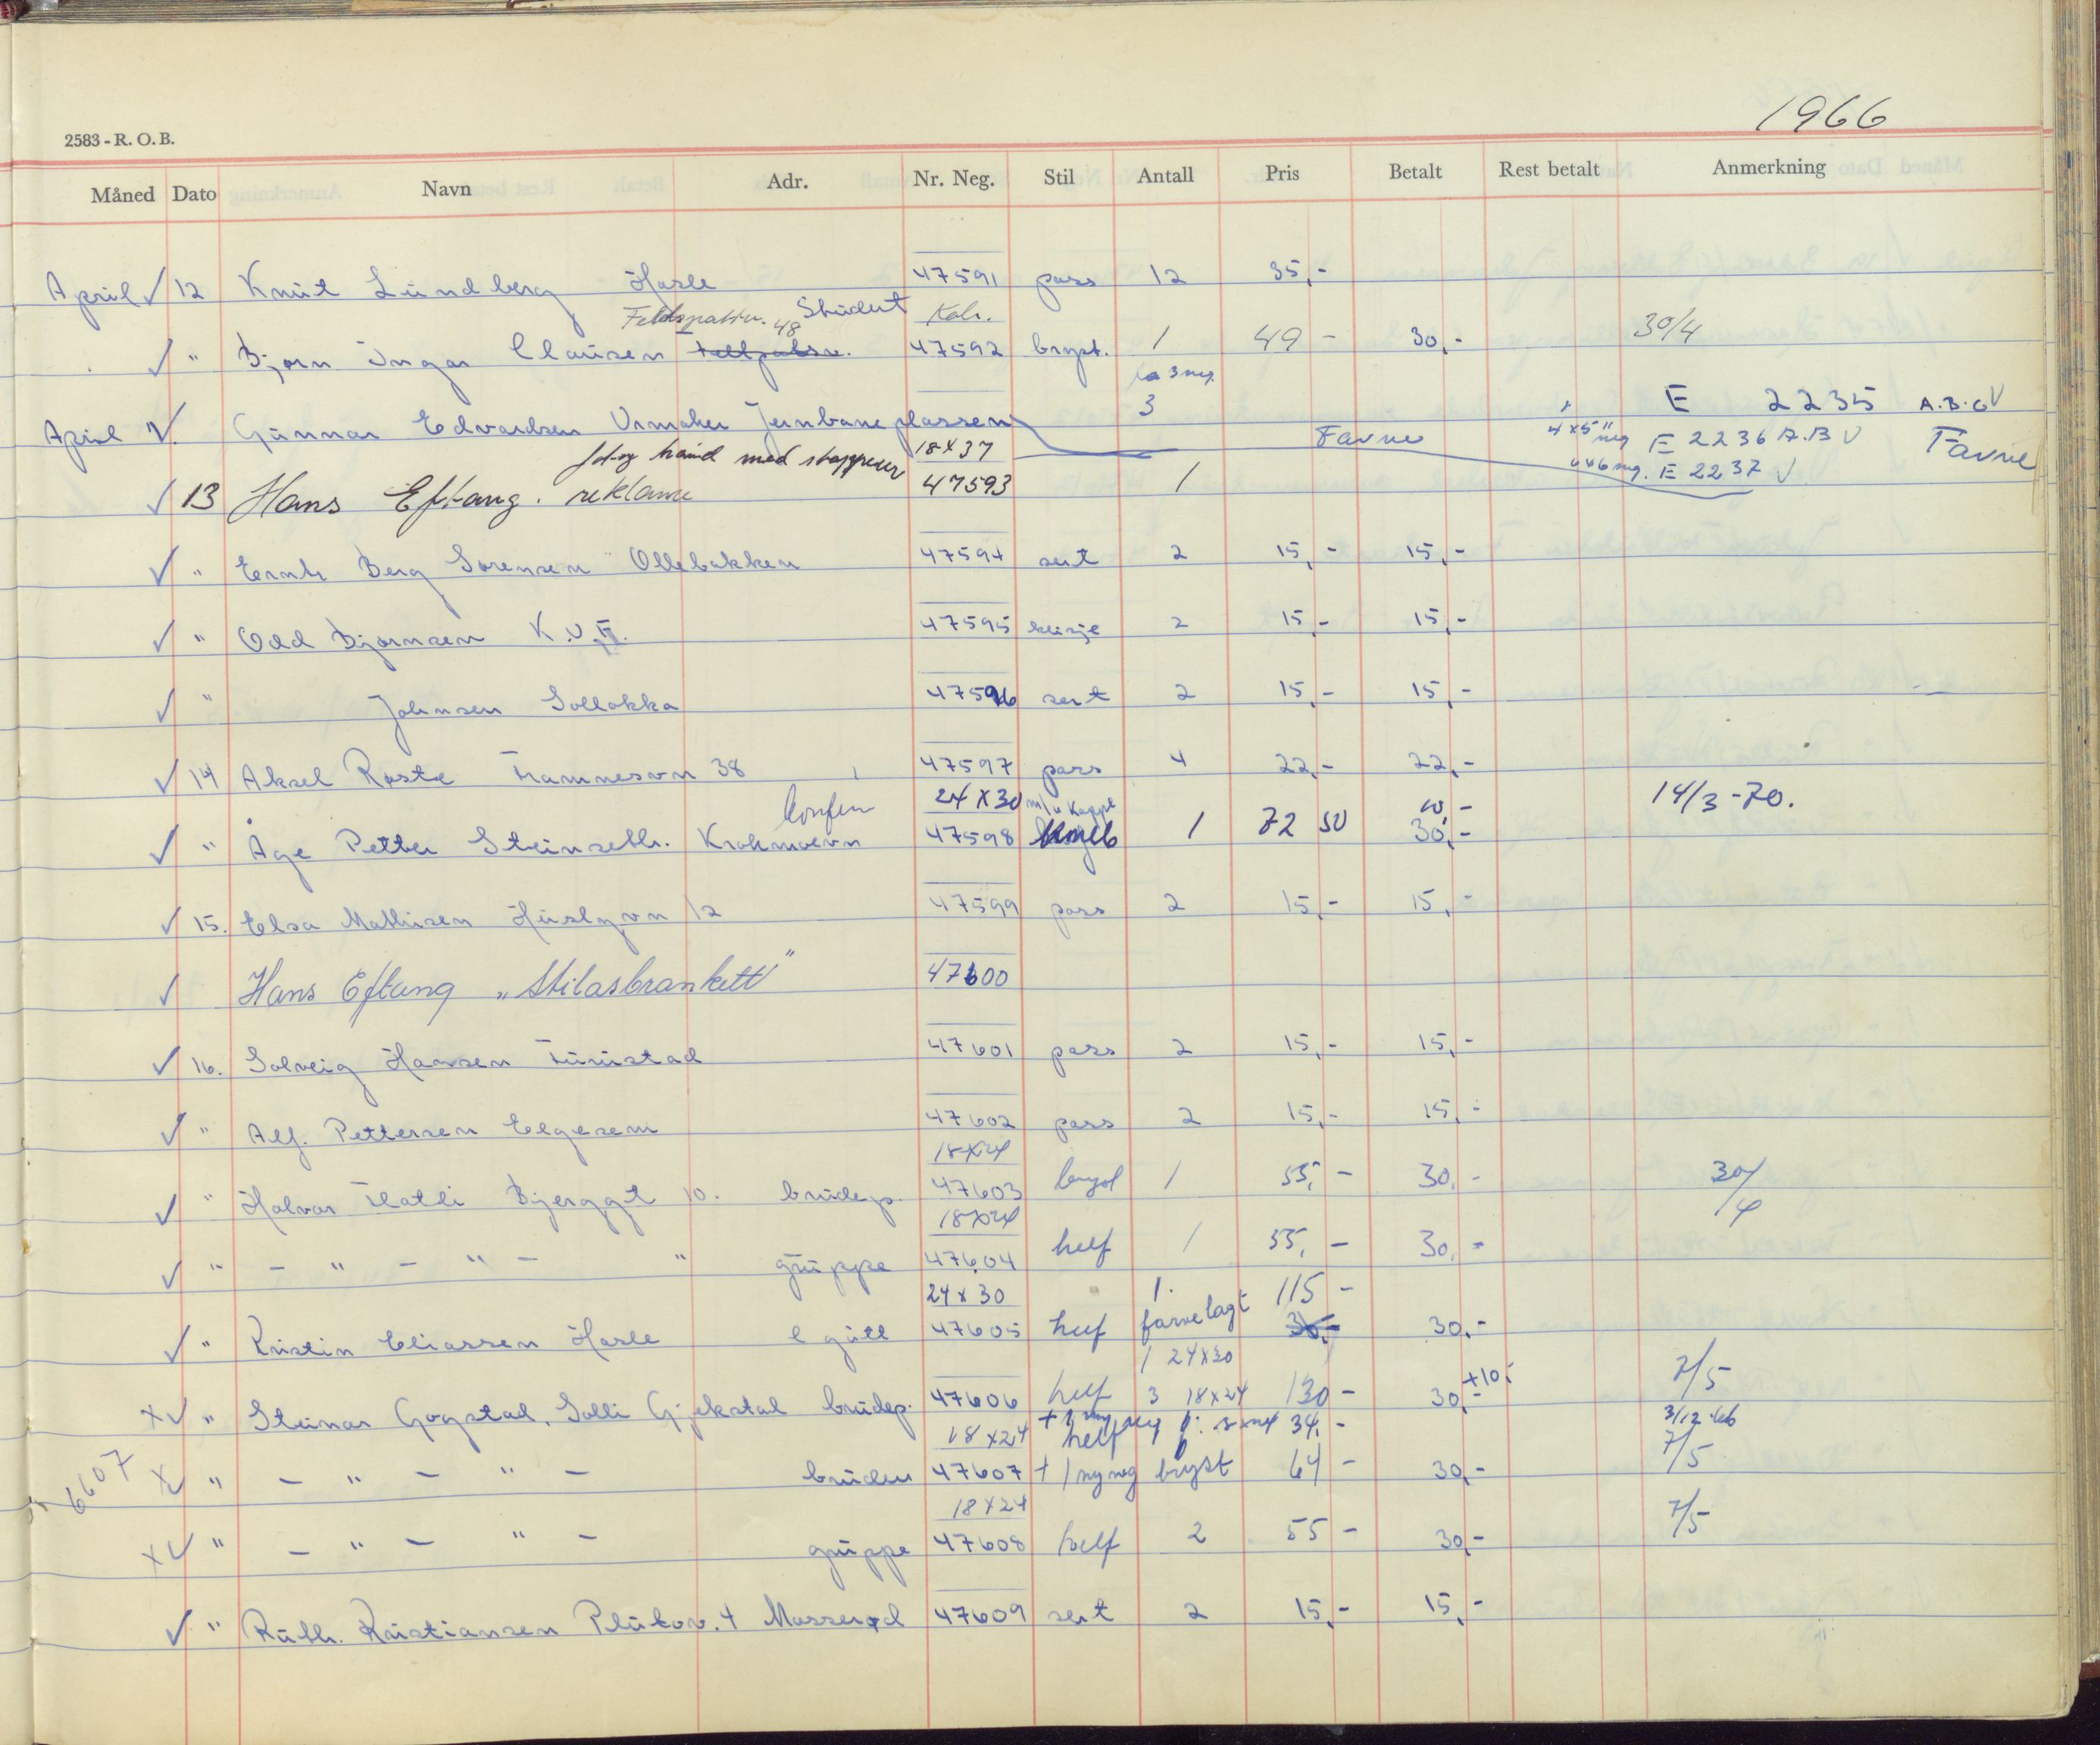 1966
2583 - R. O. B.
Måned Dato Navn Adr. Nr. Neg. Stil Antall Pris Betalt Rest betalt Anmerkning
April ✓ 12 Knut Lundberg Hasle 47591 pass 12 35,-
Student Kab.
✓ " Bjørn Ingar Clausen 48 47592 bryst. 1 49 - 30,- 30/4
a 3 neg.
April "✓ Gunnar Edvardsen Urmaker Jernbaneplassen 3 Farve E 2235 A.B.C ✓
4x5" neg E 2236 A.B ✓ Farve
6x6 neg. E 2237 ✓
hånd med stoppeur 18x37
✓ 13 Hans Eftang. reklame 47593 1
✓ " Berg Sørensen Ollebakken 47594 sert 2 15,- 15,-
✓ " Odd Bjørnsen K.V.II. 47595 2 15,- 15,-
✓ " Johnsen Solløkka 47596 sert 2 15,- 15,-
✓ 14 Aksel Roste Framnesvn 38 47597 pass 4 22,- 22,-
konfer 24x30 m/u Kappe 10,- 14/3-70.
✓ " Åge Petter Steinseth. Krokmoevn 47598 kneb 1 72 50 30,-
✓ 15. Elsa Mathisen Huslyvn 12 47599 pass 2 15,- 15,-
✓ Hans Eftang 47600
✓ 16. Solveig Hansen Furustad 47601 pass 2 15,- 15,-
✓ " Alf. Pettersen Elgesem 47602 pass 2 15,- 15,-
18x24
✓ " Halvar Flatli Bjerggt 10. brudep. 47603 bryst 1 55,- 30,- 30/4
18x24
✓ " - " - " - " gruppe 47604 helf 1 55,- 30,-
24x30 1. 115 -
✓ " Kristin Eliassen Hasle 47605 helf farvelagt 30,- 30,-
1 24x30
x✓ " Steinar Gogstad, Solli Gjekstad brudep. 47606 helf 3 18x24 130 - 30,- +10,- 7/5
34,- 3/12-66
18x24 helf
6607 x✓ " - " - " - bruden 47607 + 1 ny neg bryst 64 - 30,- 7/5
18x24
x✓ " - " - " - gruppe 47608 helf 2 55 - 30,- 7/5
✓ " Ruth. Kristiansen Plutov. 4 Mosserød 47609 sert 2 15,- 15,-